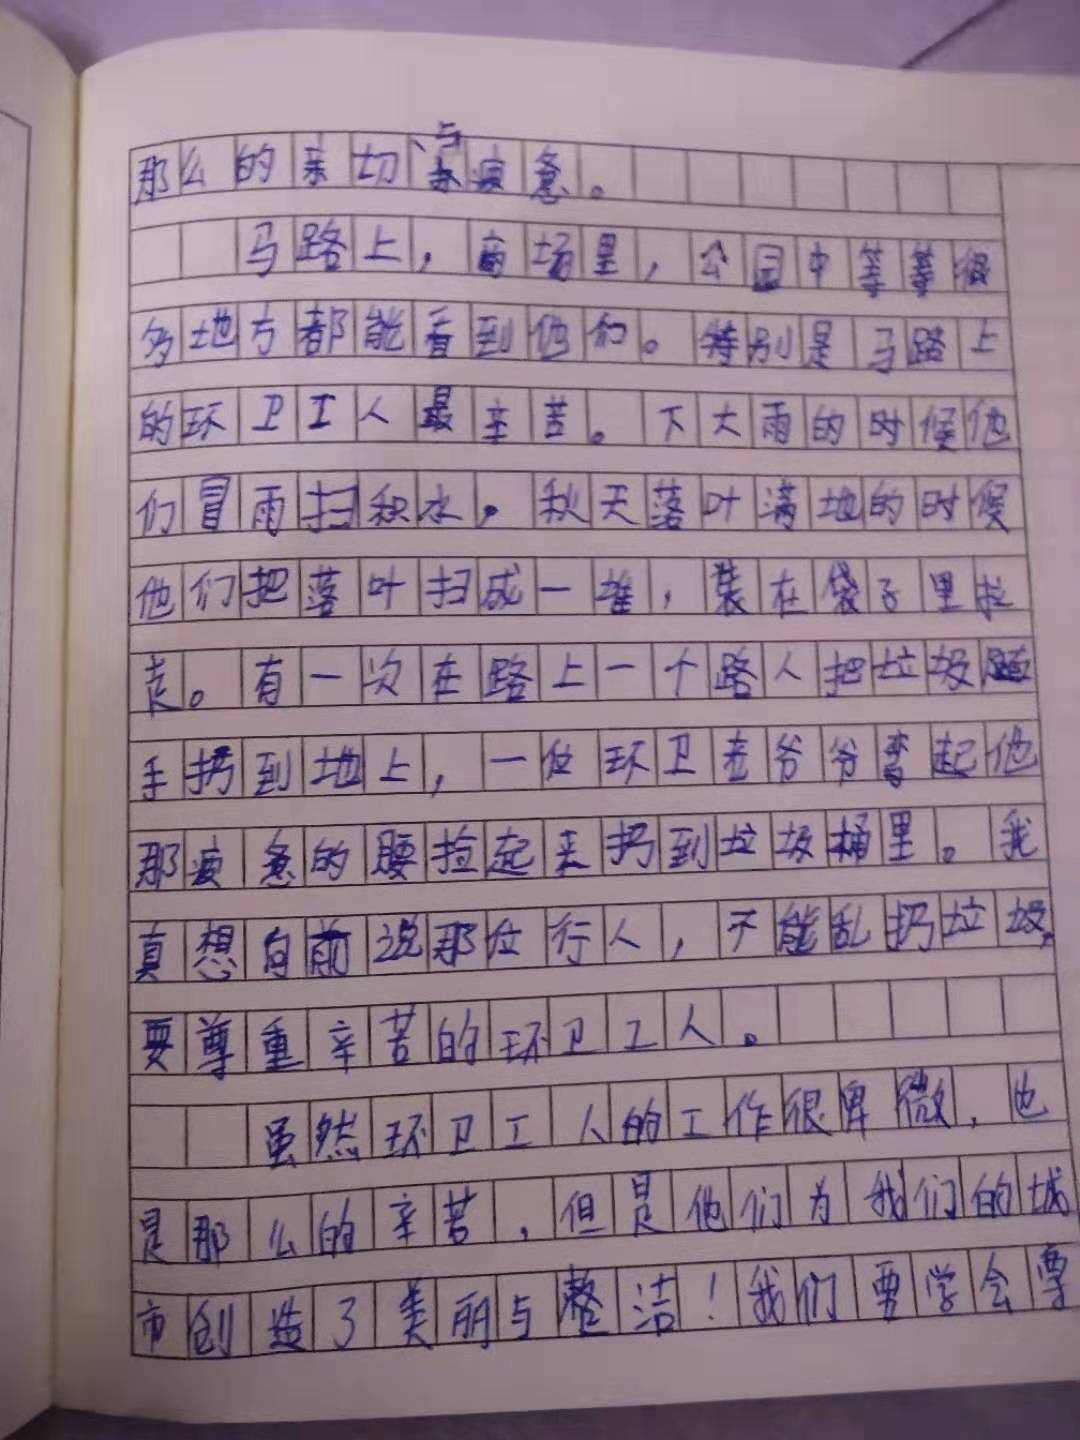 那么的亲切与疲惫。
马路上，商场里，公园中等等很
多地方都能看到他们。特别是马路上
的环卫工人最辛苦。下大雨的时候他
们冒雨扫积水。秋天落叶满地的时候
他们把落叶扫成一堆，装在袋子里拉
走。有一次在路上一个路人把垃圾随
手扔到地上，一位环卫老爷爷弯起他
那疲惫的腰捡起来扔到垃圾桶里。我
真想向前说那位行人，不能乱扔垃圾，
要尊重辛苦的环卫工人。
虽然环卫工人的工作很卑微，也
是那么的辛苦，但是他们为我们的城
市创造了美丽与整洁！我们要学会尊